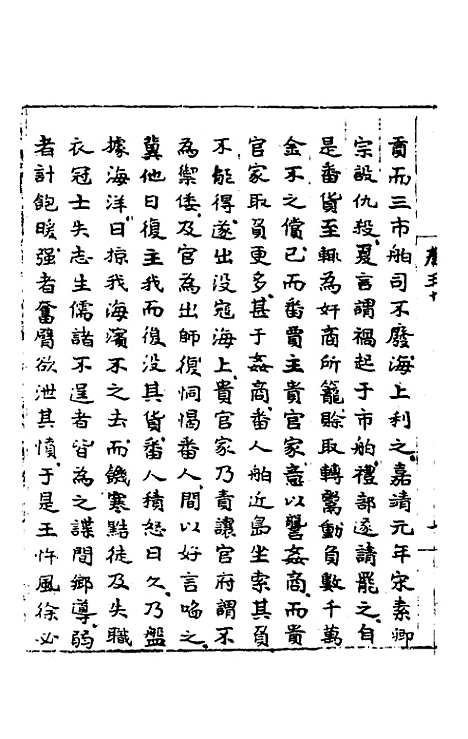 貢而三市舶司不廢海上利之嘉靖元年宋素卿
宗設仇殺夏言謂禍起于市舶禮部遂請罷之自
是番貨至輒為奸商所籠賒取轉鬻動負數千萬
金不之償已而番賈主貴官家意以讐姦商而貴
官家取負更多甚于姦商番人舶近島坐索其負
不能得遂出沒寇海上貴官家乃責讓官府謂不
為禦倭及官為出師復恫愒番人間以好言啗之
冀他日復主我而復沒其貨番人積怒日久乃盤
據海洋日掠我海濱不之去而饑寒黠徒及失職
衣冠士失志生儒諸不逞者皆為之諜間鄉導弱
者計飽暖强者奮臂欲泄其憤于是王忤風徐必